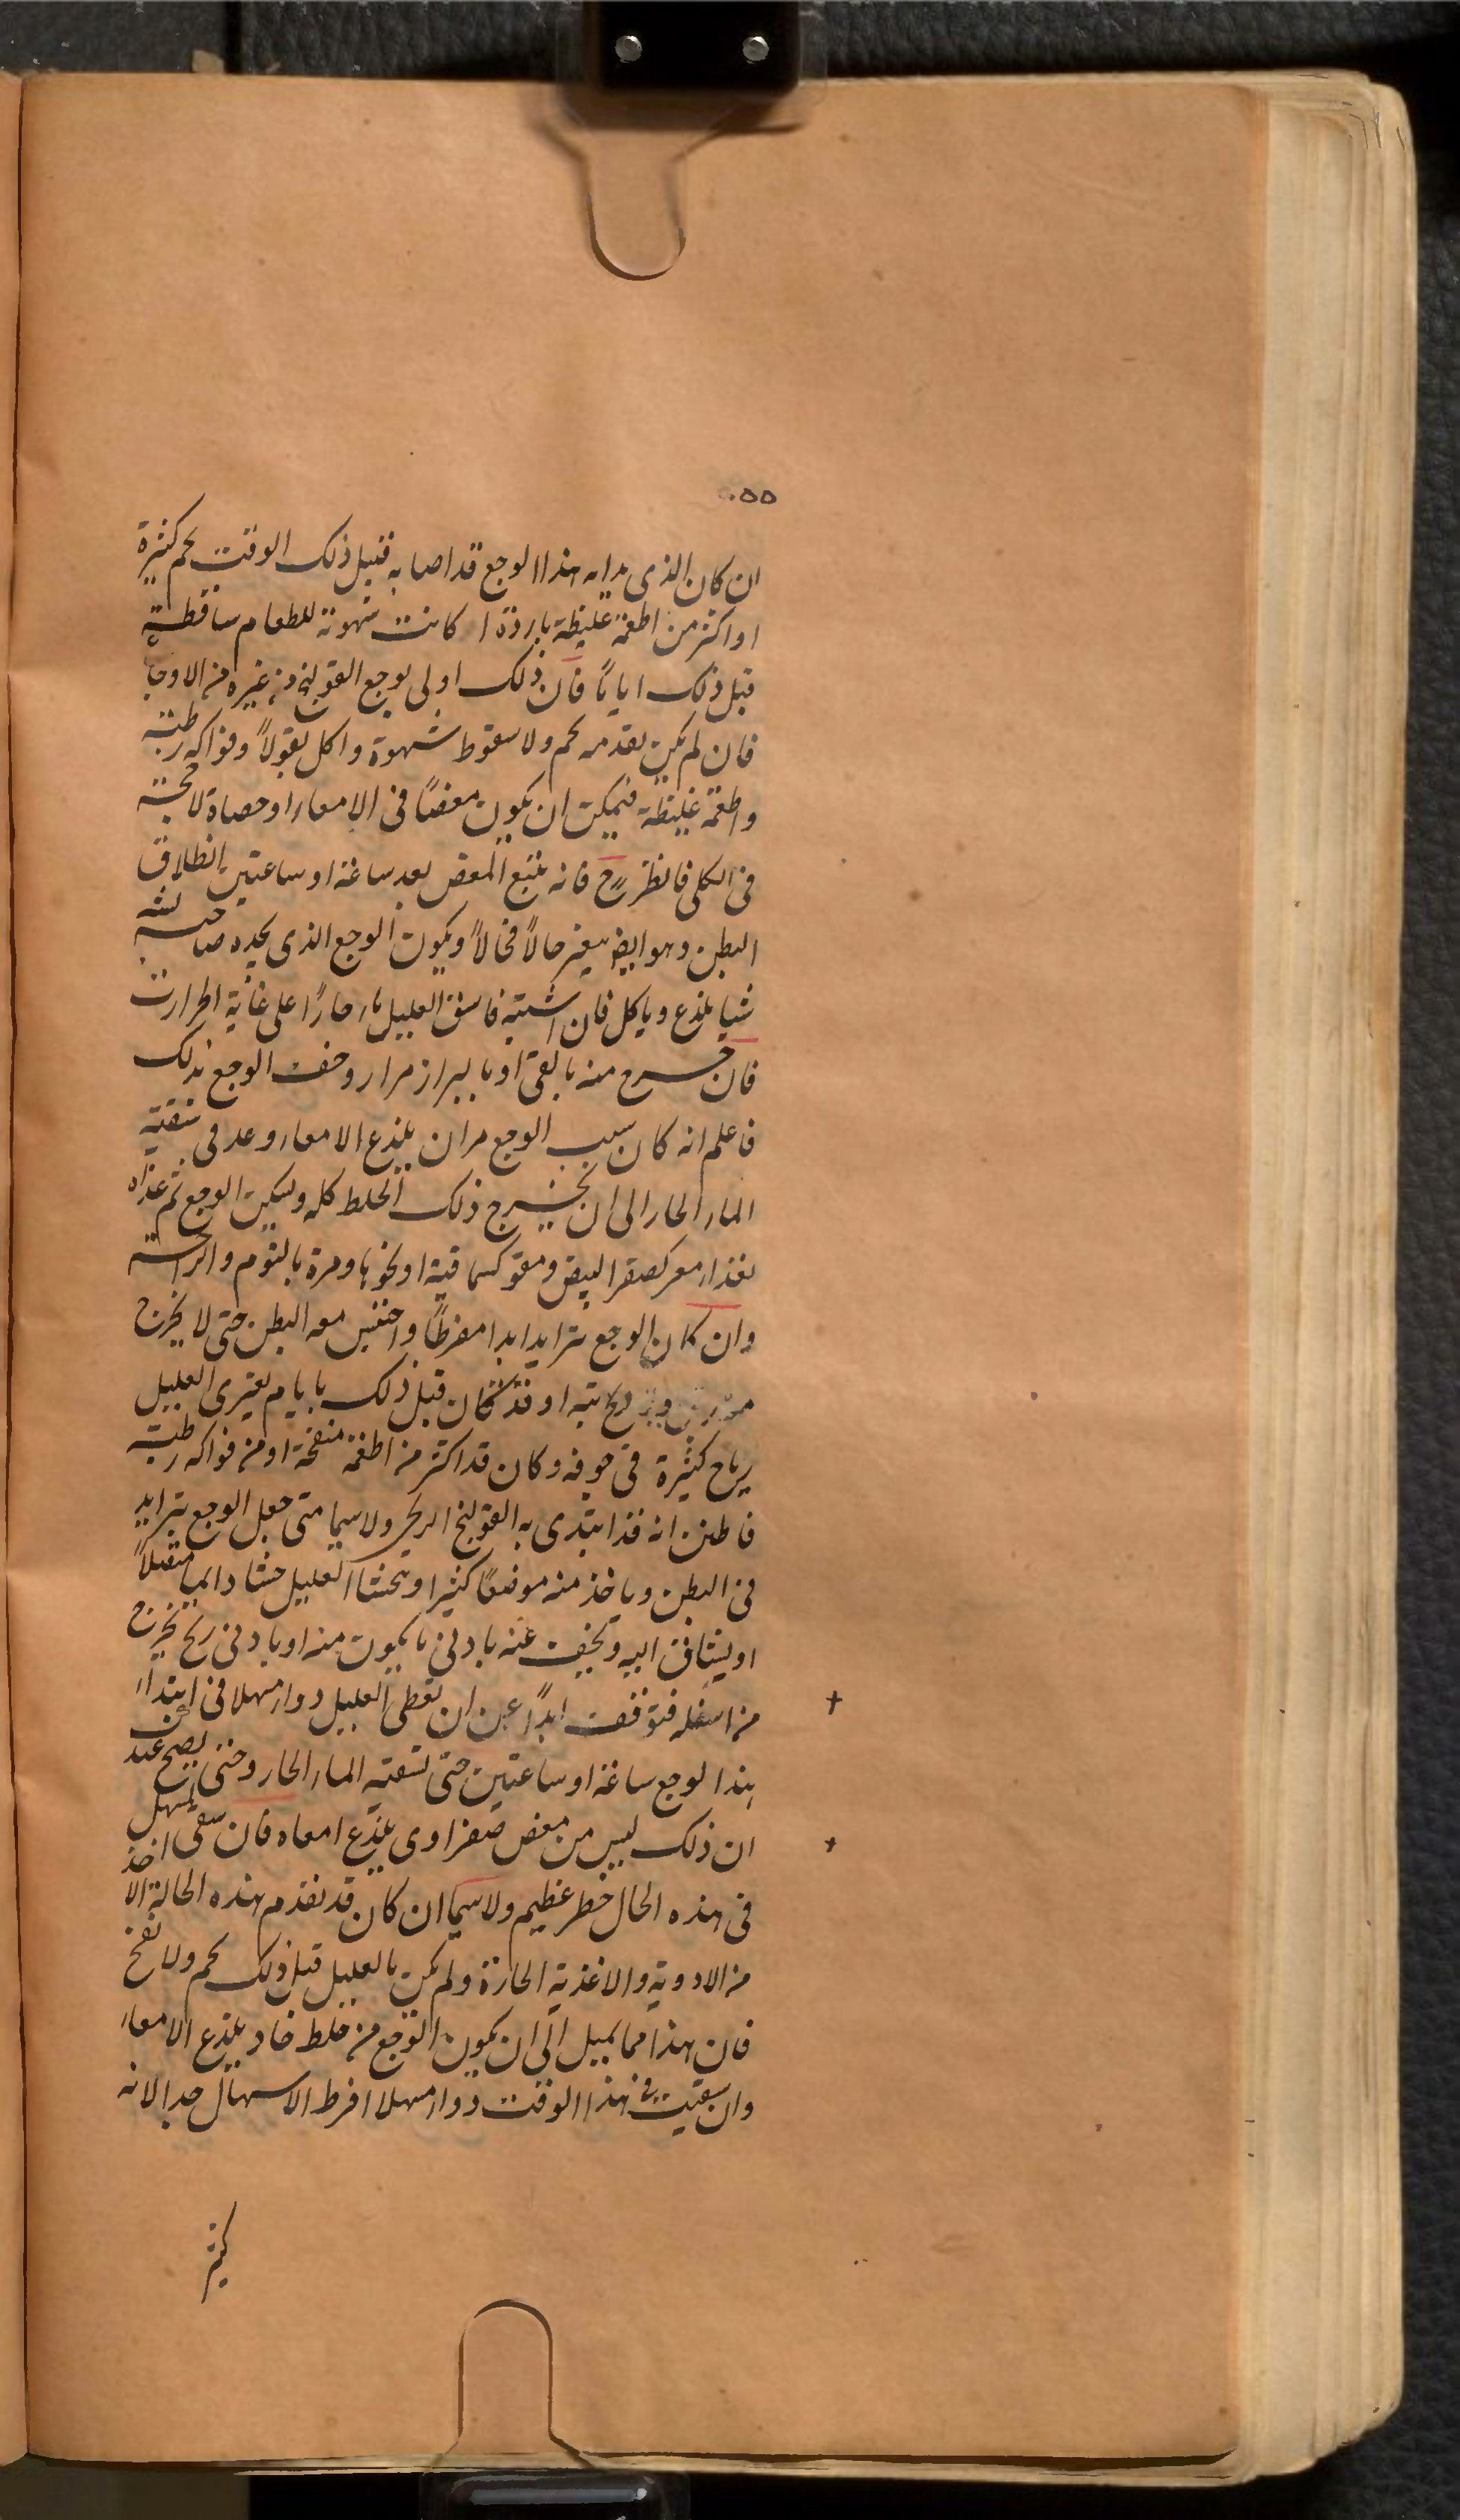 ٥٥
ان كان الذى بدا به هذا الوجع قد اصابه قبل ذلك الوقت تخم كثيرة
او اكثر من اطعمة غليظة باردة ا كانت شهوته للطعام ساقطة
قبل ذلك اياماً فان ذلك اولى بوجع القولنج من غيره من الاوجاع
فان لم يكن تقدمه تخم ولا سقوط شهوة واكل بقولاً وفواكه رطبة
واطعمة غليظة فيمكن ان يكون مغصاً فى الامعاء او حصاة لاحجة
فى الكلى فانظر ح فانه يتبع المغص بعد ساعة او ساعتين انطلاق
البطن وهو ايضا يتغير حالاً فحالاً ويكون الوجع الذى يجده صاحبه
شيا يلذع وياكل فان اشتبه فاسق العليل ماء حاراً على غاية الحرارة
فان خرج منه بالقى او بالبراز مرار وخف الوجع بذلك
فاعلم انه كان سبب الوجع مران يلذع الامعاء وعد فى تنقية
الماء الحار الى ان يخرج ذلك الخلط كله ويسكن الوجع ثم غذاه
بغذاء معر كصفر البيض ومقو كسماقية او نحوها ومره بالنوم والراحة
وان كان الوجع يتزايد ابدا مفرطاً واحتبس معه البطن حتى لا يخرج
ريح بته او قد كان قبل ذلك بايام يعترى العليل
رياح كثيرة فى جوفه وكان قد اكثر من اطعمة منفخة او من فواكه رطبة
فاظن انه قد ابتدى به القولنج الريحى ولا سيما متى جعل الوجع يتزايد
فى البطن وياخذ منه موضعاً كثيرا ويتجشا العليل جشاء دايما متصلاً
او يشتاق اليه ويخف عنه بادنى ما يكون منه او بادنى ريح يخرج
من اسفله فتوقف ابداً عن ان تعطى العليل دواء مسهلا فى ابتداء
هذا الوجع ساعة او ساعتين حتى تسقيه الماء الحار وحتى يصح عندك
ان ذلك ليس من مغص صفراوى يلذع امعاه فان سقى المسهل
فى هذه الحال خطر عظيم ولا سيما ان كان قد تقدم هذه الحالة الا اخذ
من الادوية والاغذية الحارة ولم يكن بالعليل قبل ذلك تخم ولا نفخ
فان هذا مما يميل الى ان يكون الوجع من خلط حاد يلذع الامعاء
وان سقيت فى هذا الوقت دواء مسهلا افرط الاسهال جدا لانه
كثير